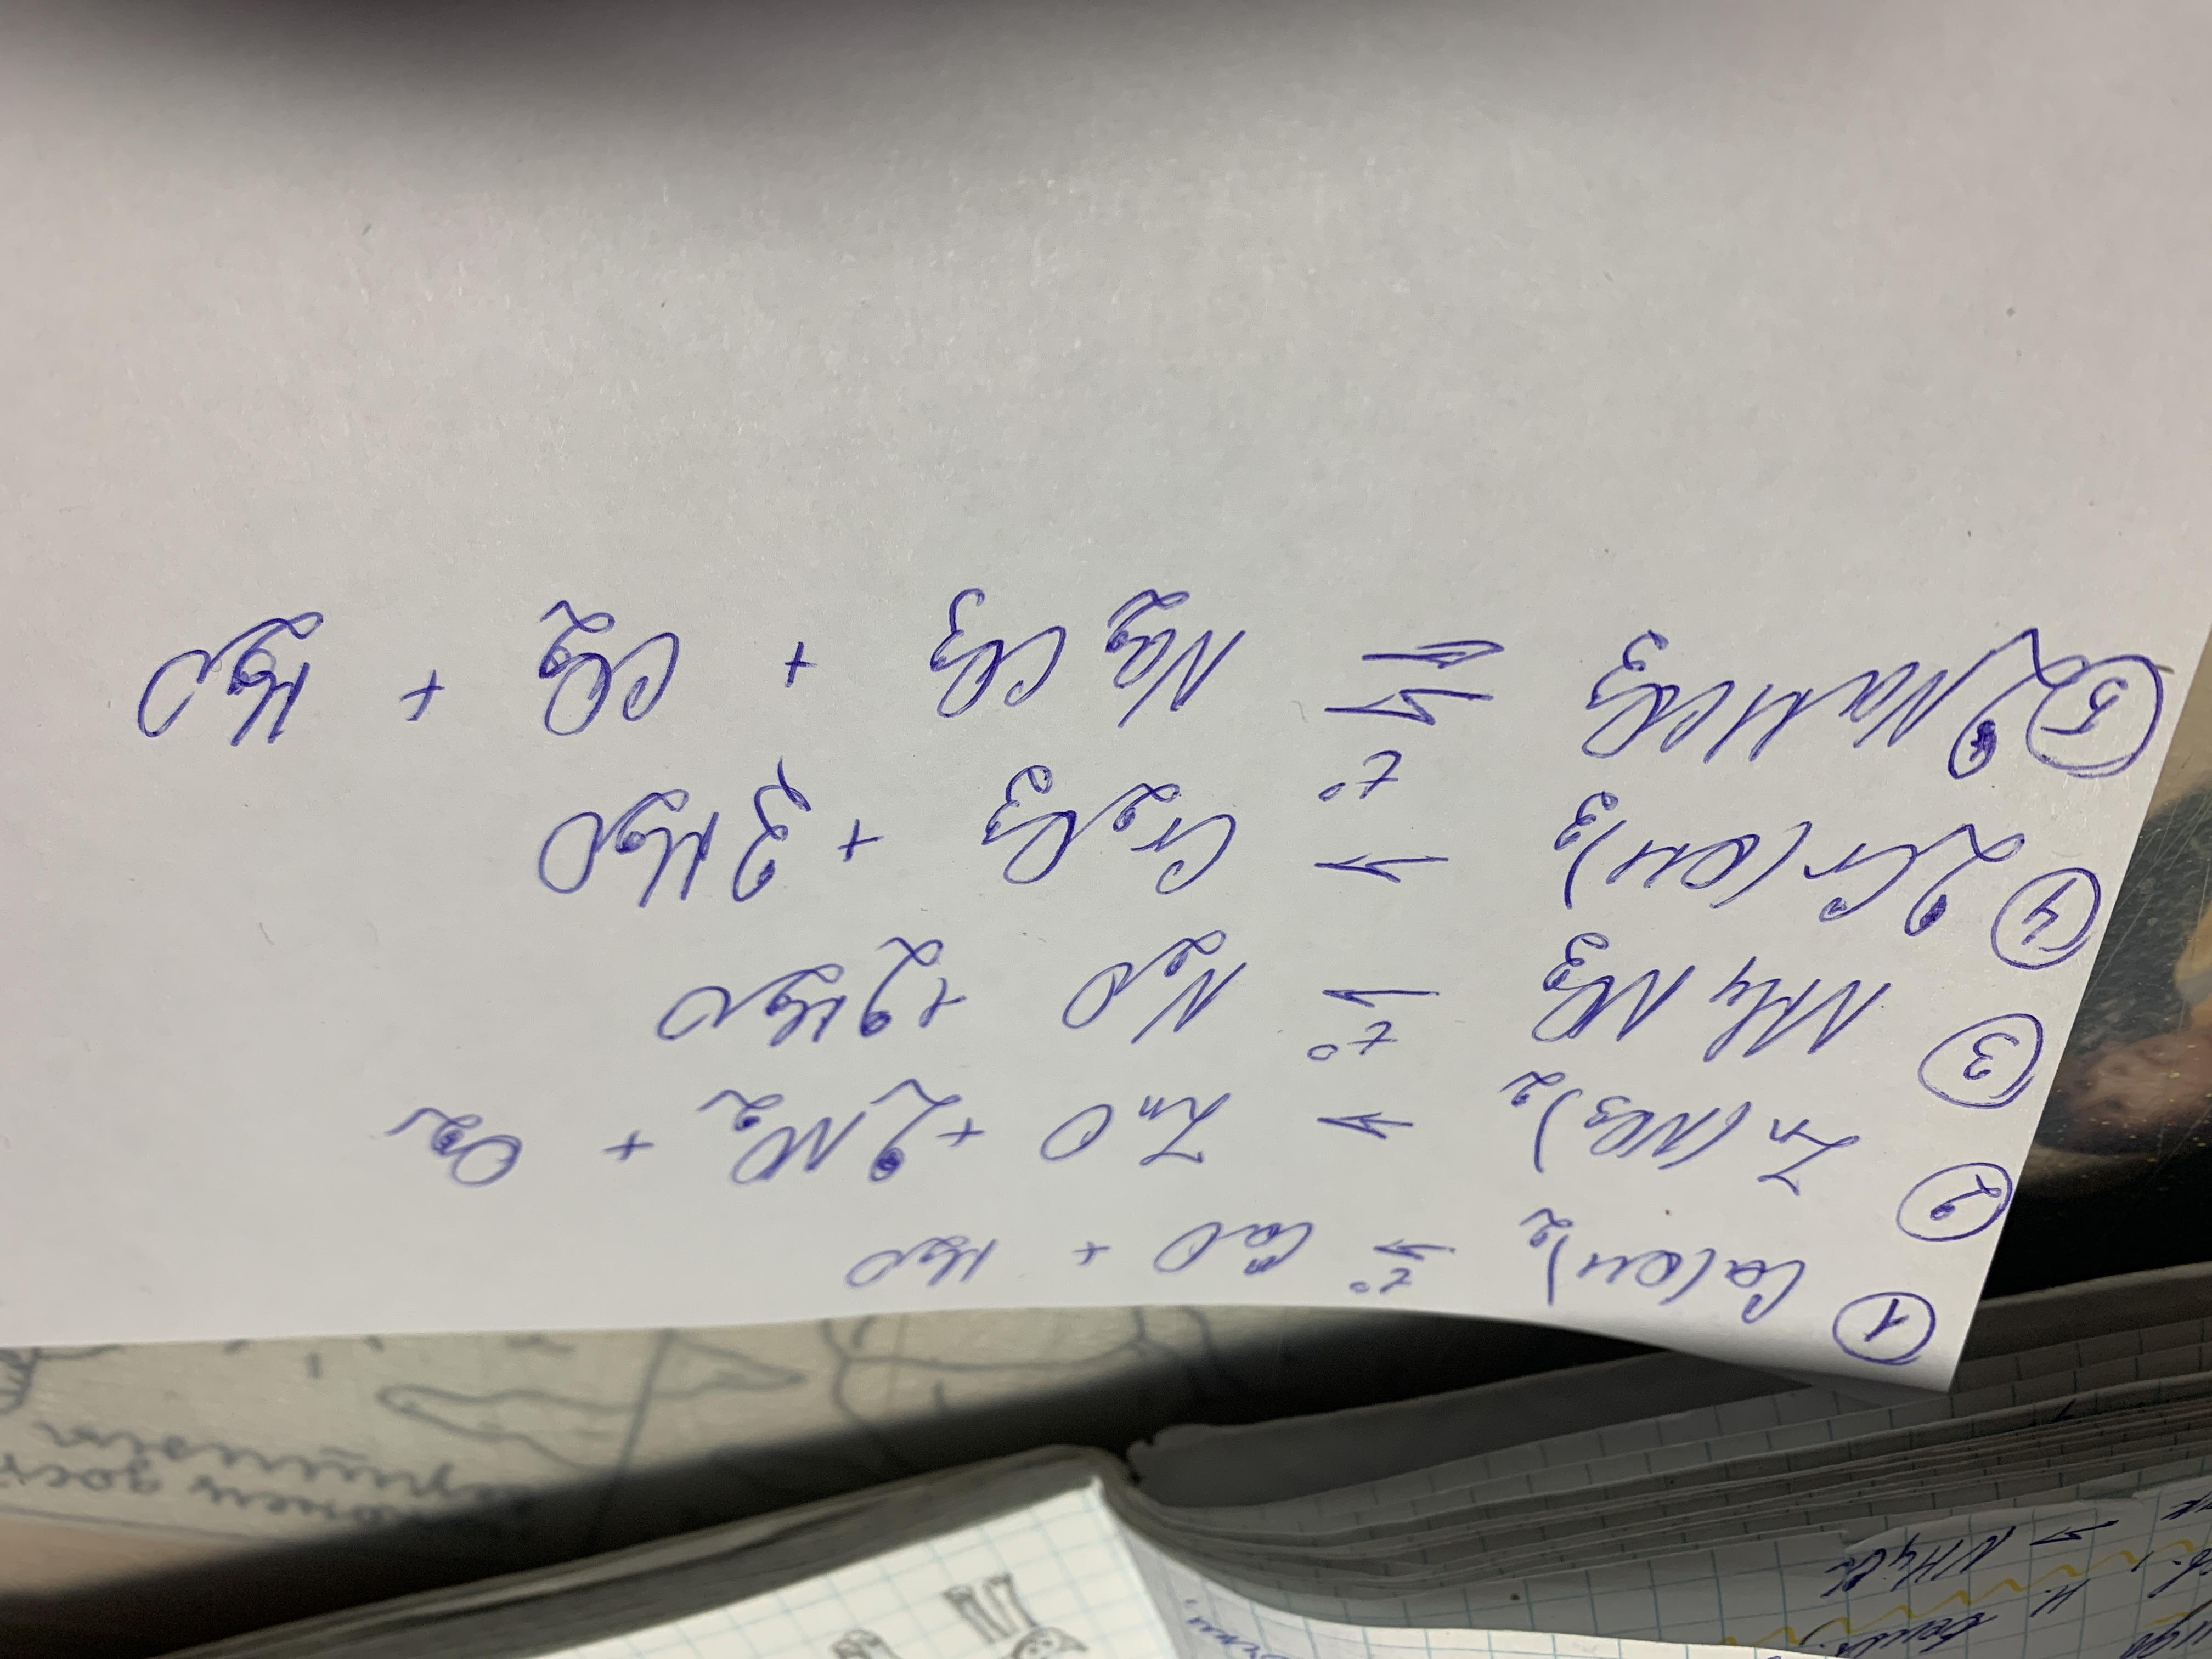 ① Ca(OH)₂ t° → CaO + H₂O
② Zn(NO₃)₂ → ZnO + 2NO₂ + O₂
③ NH₄NO₃ t° → N₂O + 2H₂O
④ 2Cr(OH)₃ → Cr₂O₃ + 3H₂O
⑤ 2NaHCO₃ t° ⇄ Na₂CO₃ + CO₂ + H₂O